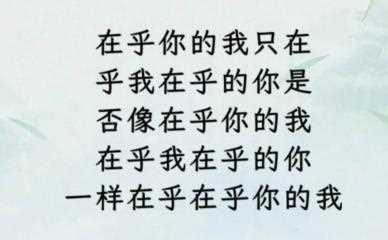 在乎你的我只在
乎我在乎的你是
否像在乎你的我
在乎我在乎的你
一样在乎在乎你的我